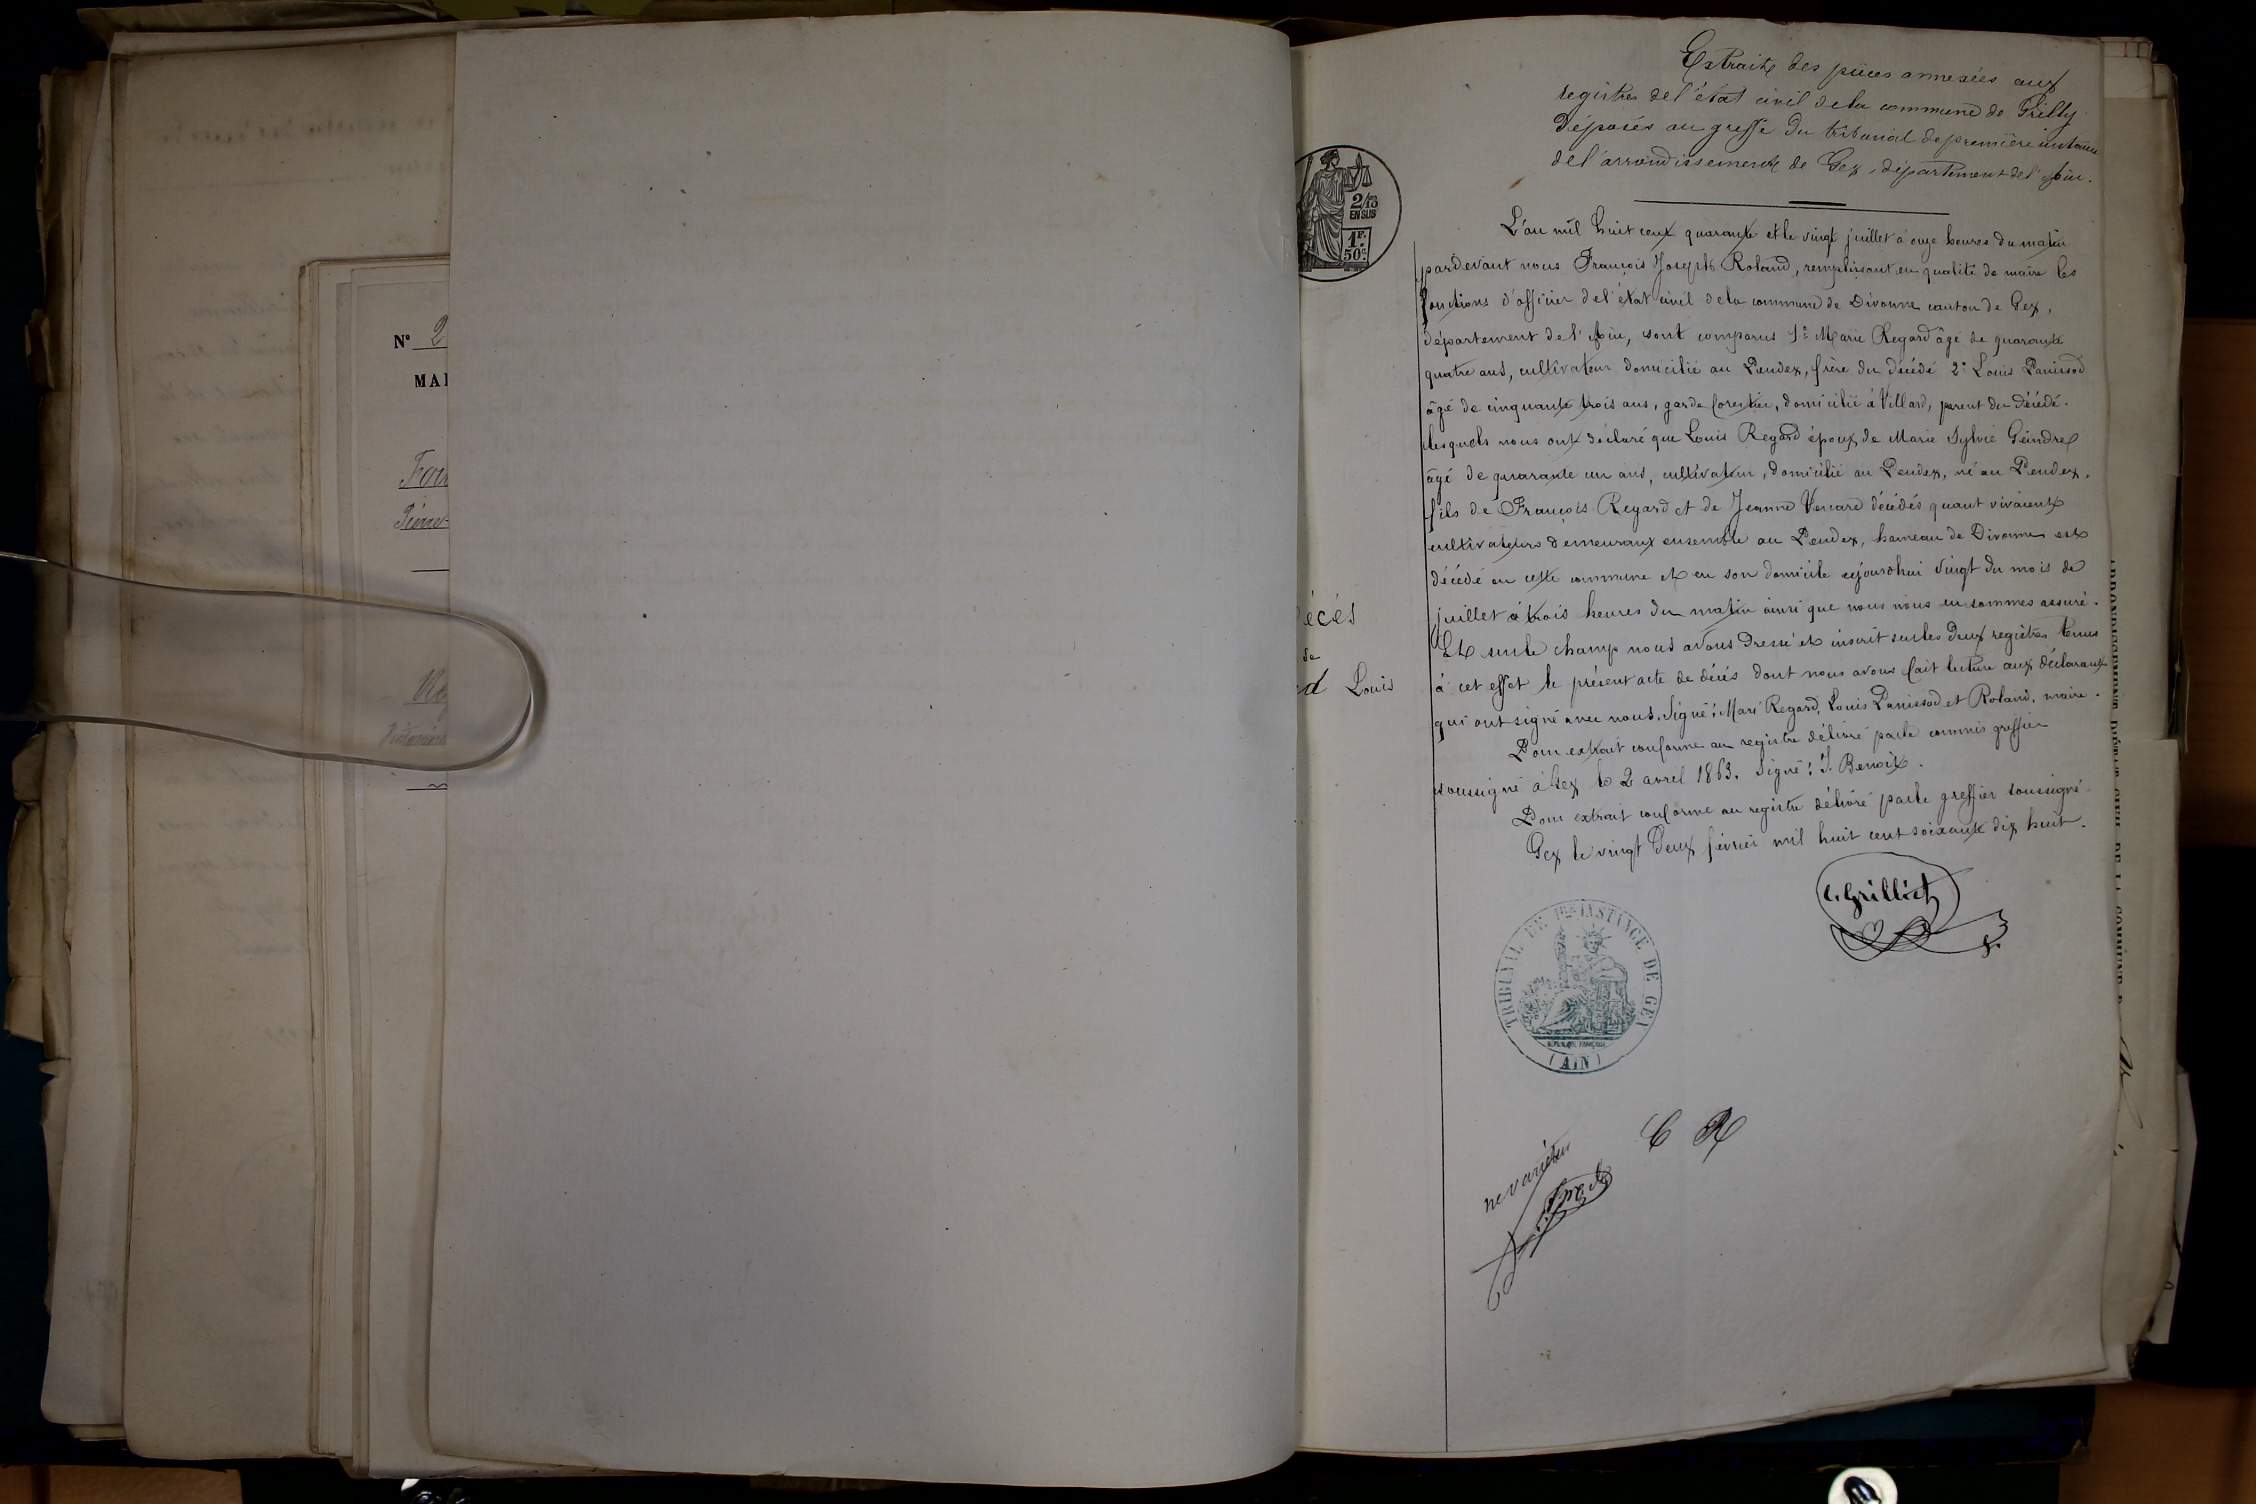 N° 2
MAI
Extraits des pièces annexées aux
registres de l'état civil de la commune de Grilly
déposés au greffe du tribunal de première instance
de l'arrondissement de Gex, département de l'Ain.
2/10
EN SUS
1F.
50c.
L'an mil huit cent quarante et le vingt juillet à onze heures du matin
pardevant nous François Joseph Roland, remplissant en qualité de maire les
fonctions d'officier de l'état civil de la commune de Divonne canton de Gex,
département de l'Ain, sont comparus 1° Marie Regard âgé de quarante
quatre ans, cultivateur domicilié au Pendex, frère du décédé 2° Louis Panissod
âgé de cinquante trois ans, garde forestier, domicilié à Villard, parent du décédé.
lesquels nous ont déclaré que Louis Regard époux de Marie Sylvie Geindre
âgé de quarante un ans, cultivateur, domicilié au Pendex, né au Pendex,
fils de François Regard et de Jeanne décédés quant vivaient
cultivateurs demeurant ensemble au Pendex, hameau de Divonne est
décédé en cette commune et en son domicile aujourd'hui vingt du mois de
juillet à trois heures du matin ainsi que nous nous en sommes assuré.
Et sur le champ nous avons dressé et inscrit sur les deux registres tenus
à cet effet le présent acte de décès dont nous avons fait lecture aux déclarants
qui ont signé avec nous. Signé: Marie Regard, Louis Panissod et Roland, maire.
Pour extrait conforme au registre délivré par le commis greffier
soussigné à Gex le 2 avril 1863. Signé: J. Benoit.
Pour extrait conforme au registre délivré par le greffier soussigné
Gex le vingt deux février mil huit cent soixante dix huit.
écés
de
d Louis
C. Grilliet
TRIBUNAL DE 1re INSTANCE DE GEX
(AIN)
C R
ne varietur